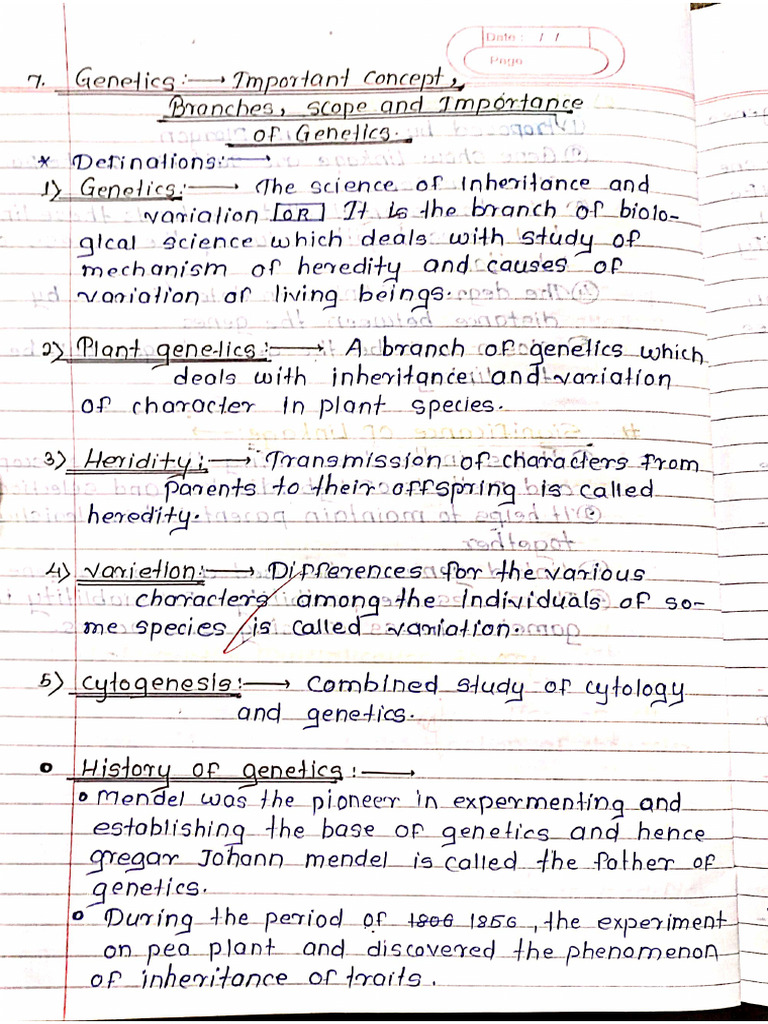 Date: / /
Page
7. Genetics:⟶ Important Concept,
Branches, scope and Importance
of Genetics.
* Definations:⟶
1) Genetics:⟶ The science of Inheritance and
variation [OR] It is the branch of biolo-
gical science which deals with study of
mechanism of heredity and causes of
variation of living beings.
2) Plant genetics:⟶ A branch of genetics which
deals with inheritance and variation
of character in plant species.
3) Heridity:⟶ Transmission of characters from
parents to their offspring is called
heredity.
4) Varietion:⟶ Differences for the various
characters among the individuals of so-
me species is called variation.
5) Cytogenesis:⟶ Combined study of cytology
and genetics.
• History of genetics:⟶
• Mendel was the pioneer in expermenting and
establishing the base of genetics and hence
gregar Johann mendel is called the father of
genetics.
• During the period of 1806 1856, the experiment
on pea plant and discovered the phenomenon
of inheritance of traits.